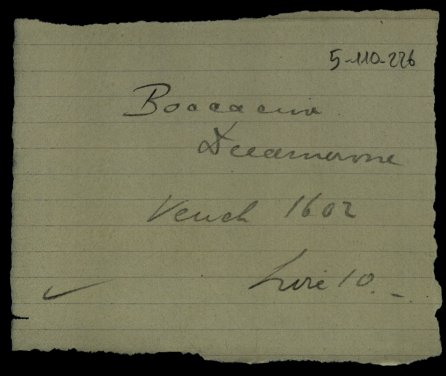 5-110-226
Boccaccio
Decamerone
Venet 1602
Lire 10.-